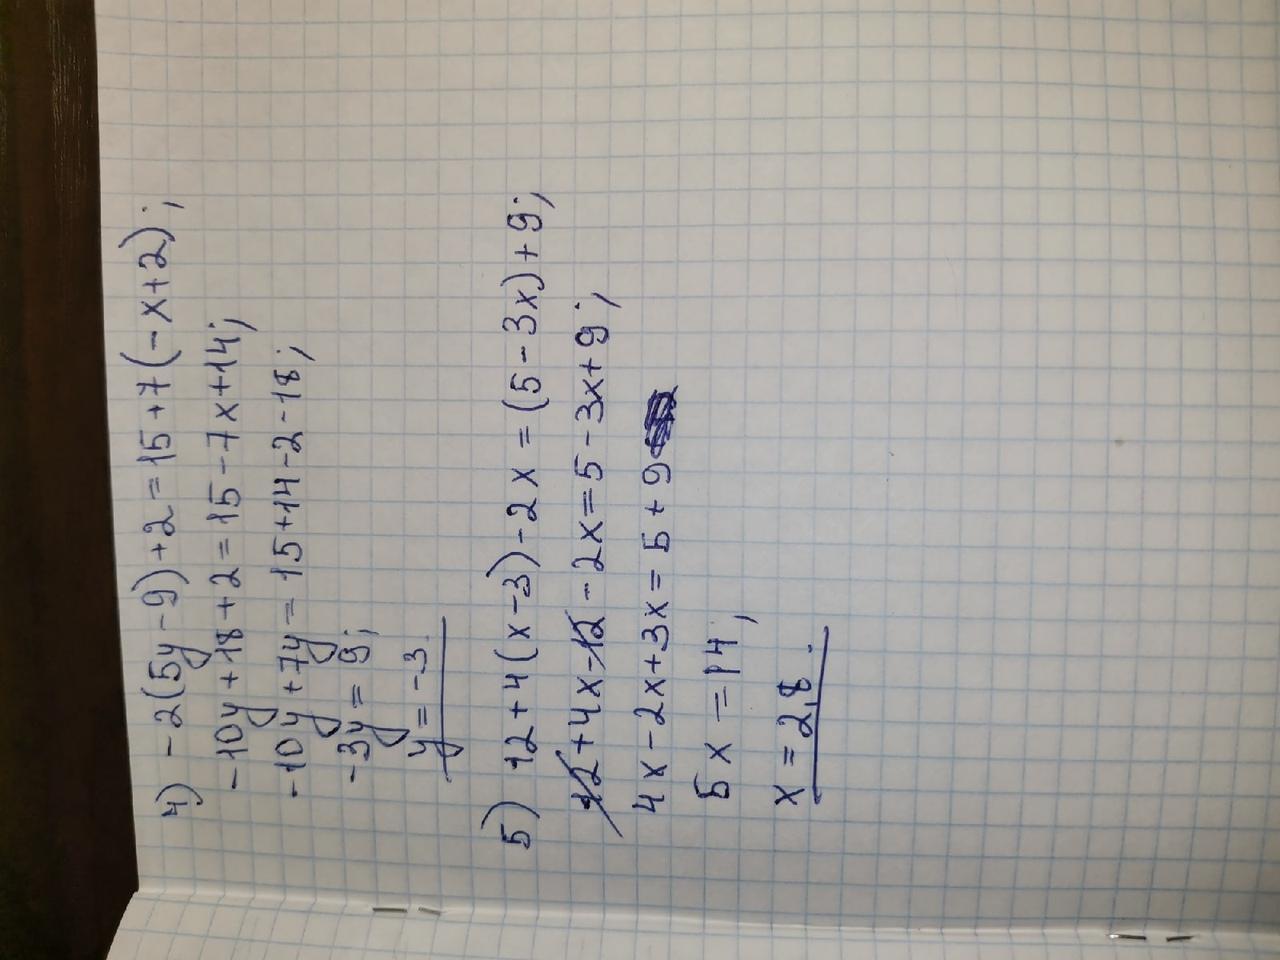 4) -2(5y-9)+2=15+7(-x+2);
-10y+18+2=15-7x+14;
-10y+7y=15+14-2-18;
-3y=9;
y=-3.
5) 12+4(x-3)-2x=(5-3x)+9;
12+4x-12-2x=5-3x+9;
4x-2x+3x=5+9
5x=14;
x=2,8.